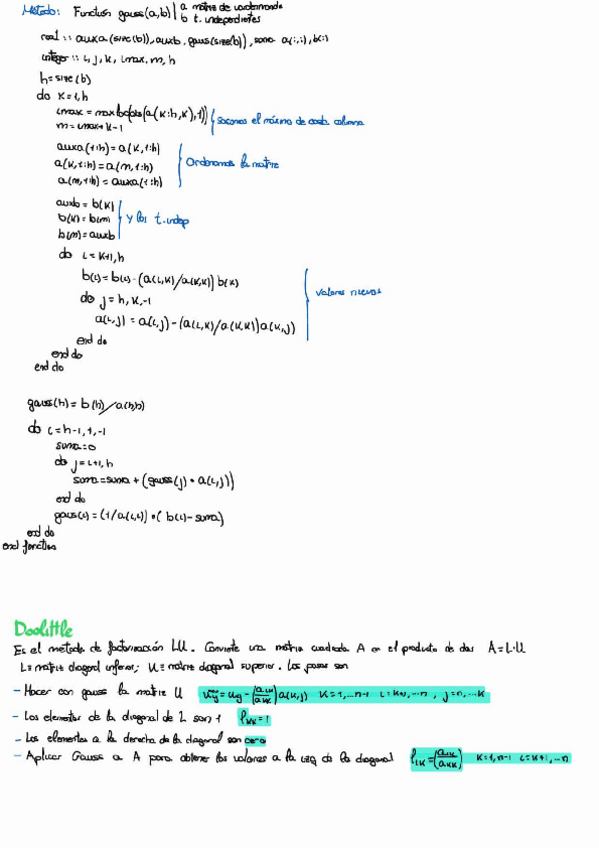 Método: Function gauss(a,b) | a matriz de coordenadas
b t. independientes
real :: auxa(size(b)), auxb, gauss(size(b)), suma, a(:,:), b(:)
integer :: i, j, k, imax, m, n
n=size(b)
do k=1,n
imax = maxloc(abs(a(k:n,k),1)) sacamos el máximo de cada columna
m = imax+k-1
auxa(1:n)=a(k,1:n)
a(k,1:n)=a(m,1:n) Ordenamos la matriz
a(m,1:n)=auxa(1:n)
auxb = b(k)
b(k)=b(m) y los t.indep
b(m)=auxb
do i=k+1,n
b(i)=b(i)-(a(i,k)/a(k,k))b(k)
do j=n,k,-1 valores nuevos
a(i,j)=a(i,j)-(a(i,k)/a(k,k))a(k,j)
end do
end do
end do
gauss(n)=b(n)/a(n,n)
do i=n-1,1,-1
suma=0
do j=i+1,n
suma=suma+(gauss(j)*a(i,j))
end do
gauss(i)=(1/a(i,i))*(b(i)-suma)
end do
end function
Doolittle
Es el método de factorización LU. Convierte una matriz cuadrada A en el producto de dos A=L·U
L=matriz diagonal inferior; U=matriz diagonal superior. Los pasos son
- Hacer con gauss la matriz U uij=uij-(aik/akk)a(k,j) k=1,...n-1 i=k+1,...n, j=n,...k
- Los elementos de la diagonal de L son 1 lkk=1
- Los elementos a la derecha de la diagonal son cero
- Aplicar Gauss a A para obtener los valores a la izq de la diagonal lik=(aik/akk) k=1,n-1 i=k+1,...n